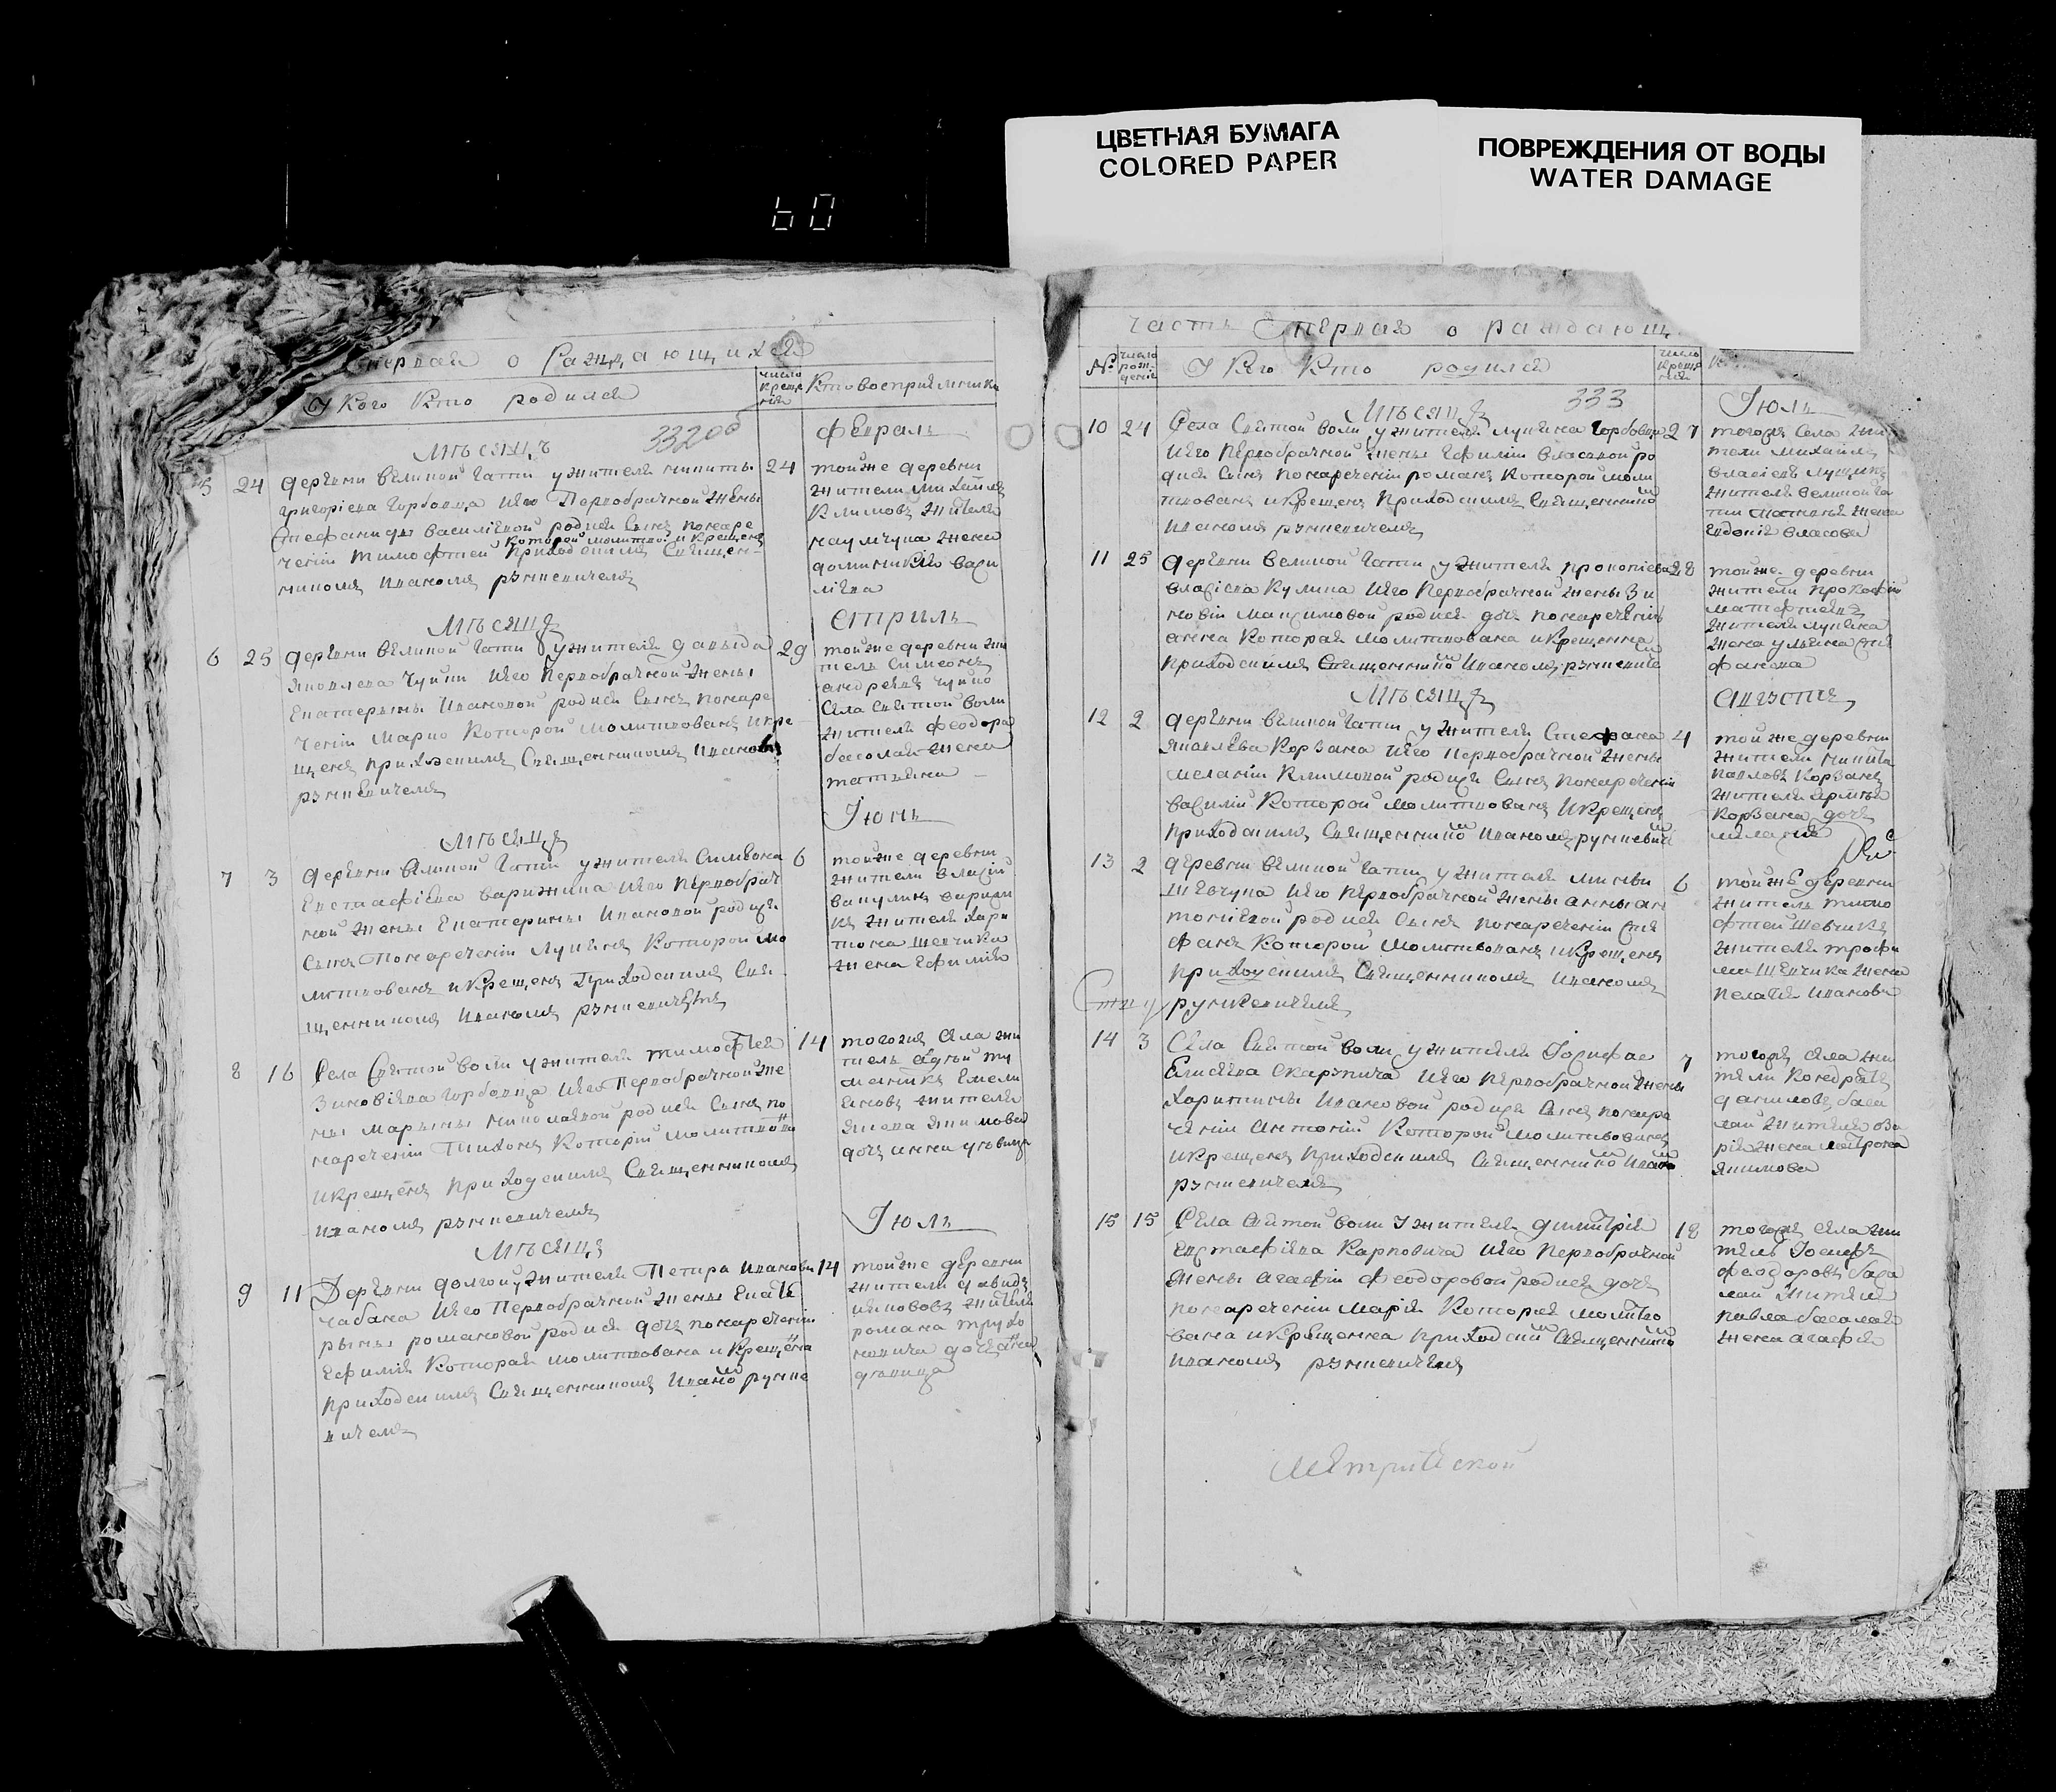 ЦВЕТНАЯ БУМАГА
COLORED PAPER
ПОВРЕЖДЕНИЯ ОТ ВОДЫ
WATER DAMAGE
60
первая о раждающихся
У Кого Кто родился
число креще ния
Кто восприемники
332об
Мѣсяцъ
Февраль
5 24 деревни великой Гати у жителя никиты 24
григориева Горбовца Иего Первобрачной жены
Стефаниды василиевой родися Сынъ понаре
которой молитвой и крещенъ
чении тимофтей приходскимъ Священ
никомъ Иваномъ румкевичемъ
тойже деревни
жители михайлъ
Климовъ жителя
наумчука жена
доминикия васи
лиева
Мѣсяцъ
Априль
6 25 деревни великой Гати у жителя давыда 29
Яковлева Чуйки Иего первобрачной жены
Екатерины Ивановой родися Сынъ понаре
чении Марко Которой молитвованъ икре
щенъ приходскимъ Священникомъ Иваномъ
румкевичемъ
тойже деревни жи
тель Симеонъ
андреевъ чуйко
Села Святой воли
жителя феодора
басолая жена
татияна
Мѣсяцъ
Іюнь
7 3 деревни великой Гати у жителя Симеона 6
Евстафиева варижика Иего первобрач
ной жены Екатерины Ивановой родися
Сынъ понаречении лукянъ Которой мо
литвованъ икрещенъ Приходскимъ Свя
щенникомъ Иваномъ румкевичемъ
тойже деревни
жители власий
жителя хари
тона шевчика
жена Ефимия
8 16 Села Святой воли у жителя тимофтея 14
Зиновиева горбовца Иего Первобрачной же
ны марыны николаевой родися Сынъ по
наречении Тихонъ Которий молитвован
икрещенъ приходскимъ Священникомъ
Иваномъ румкевичемъ
тогожъ Села жи
тель
жителя
Якова Якимова
дочъ анна удовица
Мѣсяцъ
Іюль
9 11 Деревни долгой у жителя Петра иванова 14
чабана Иего Первобрачной жены Екате
рыны романовой родися дочъ понаречении
Ефимия Которая молитвована и крещена
приходскимъ Священникомъ Иваномъ румке
вичемъ
тойже деревни
жители давидъ
жителя
романа
дочъ
девица
часть первая о раждающ
№ число рожденія
У Кого Кто родился
число крещения
333
Мѣсяцъ
Іюль
10 24 Села Святой воли у жителя лукяна горбовца 27
Иего Первобрачной жены Ефимии власовой ро
дися Сынъ понаречении романъ Которой моли
твованъ икрещенъ Приходскимъ Священнико
Иваномъ румкевичемъ
тогожъ Села жи
тели михайлъ
власиевъ лущикъ
жителя великой га
ти жена
Евдокия власова
11 25 деревни великой Гати у жителя прокопиева 28
власиева Кулика Иего первобрачной жены Зи
новии максимовой родися дочъ понаречении
анна Которая молитвована икрещенна
приходскимъ Священнико Иваномъ румкевиче
тойже деревни
жители прокофий
матфтеевъ
жителя лукяна
жена уляна Сте
фанова
Мѣсяцъ
Августъ
12 2 деревни великой Гати у жителя Стефана 4
Яковлева Корзана Иего первобрачной жены
мелании Климовой родися Сынъ понаречении
василий Которой молитвованъ Икрещенъ
приходскимъ Священнико Иваномъ румкеви
тойже деревни
жители никита
павловъ Корзанъ
жителя
Корзана дочъ
мелания
13 2 деревни великой Гати у жителя мины 6
шевчука Иего первобрачной жены анны ан
тониевой родися Сынъ понаречении Сте
фанъ Которой молитвованъ икрещенъ
приходскимъ Священникомъ Иваномъ
румкевичемъ
тойже деревни
житель тимо
фтей шевчикъ
жителя трофи
ма шевчика жена
пелагия иванова
14 3 Села Святой воли у жителя Іосифа 7
Елисеева скарупича Иего первобрачной жены
харитины Ивановой родися Сынъ понаре
чении антоний Которой молитвованъ
икрещенъ приходскимъ Священнико Ивано
румкевичемъ
тогожъ села жи
тели Кондратъ
даниловъ баса
лай жителя аза
рия жена матрона
якимова
15 15 Села Святой воли у жителя димитрия 18
Евстафиева Карповича Иего первобрачной
жены агафии феодоровой родися дочъ
понаречении мария Которая молитво
вана икрещенна приходским Священнико
Иваномъ румкевичемъ
тогожъ села жи
тель Іосифъ
феодоровъ баса
лай жителя
павла басалая
жена агафия
метрической